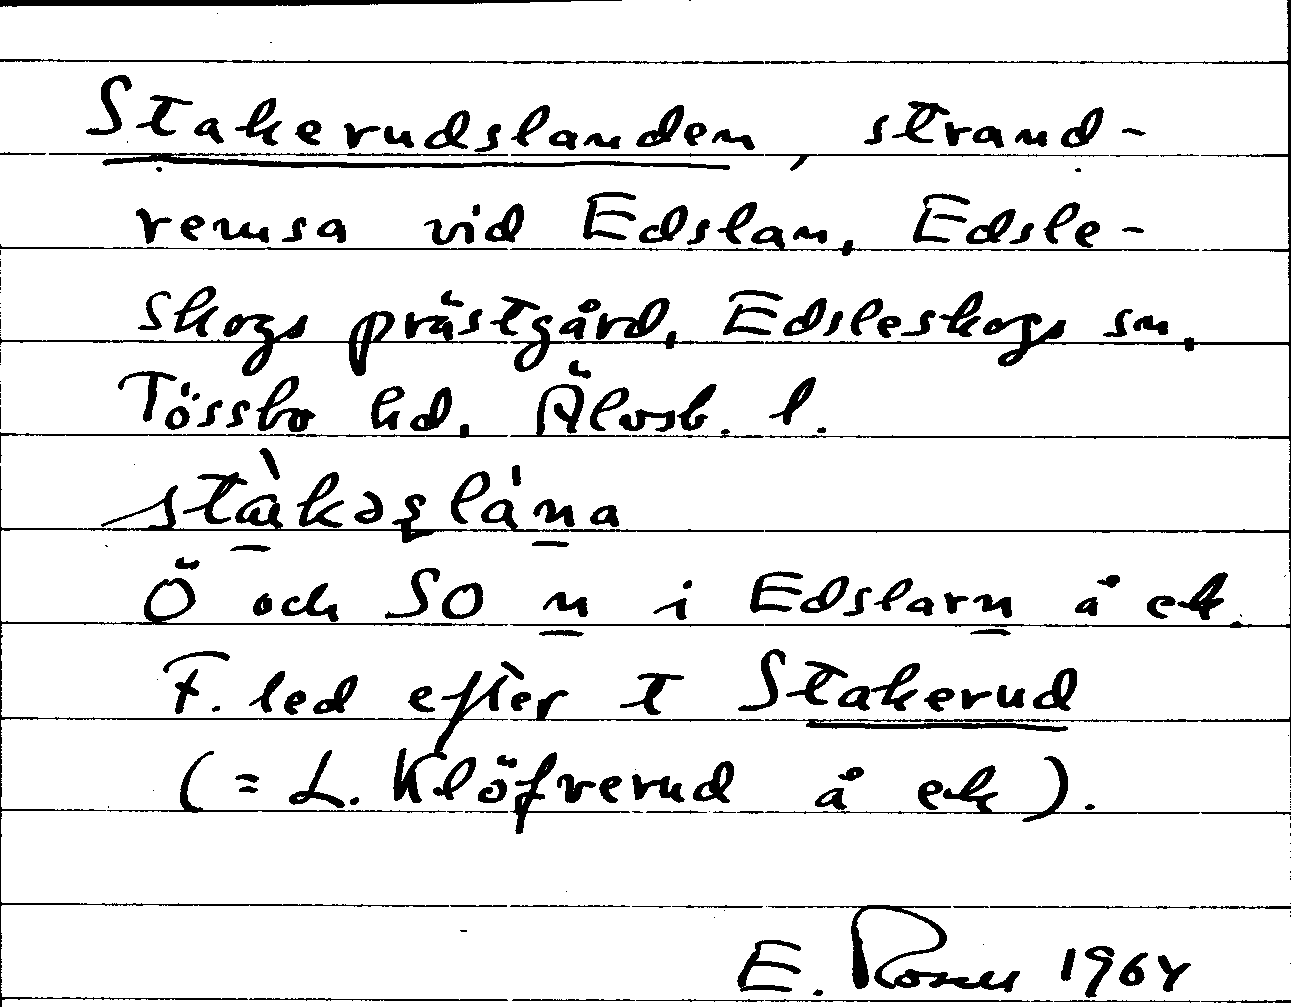 Stakerudslanden, strand-
remsa vid Edslan, Edsle-
skogs prästgård, Edsleskogs sn,
Tössbo hd, Älvsb. l.
Ö och SO n i Edslarn å ek.
F. led efter t Stakerud
(= L. Klöfverud å ek).
E. Rosen 1964